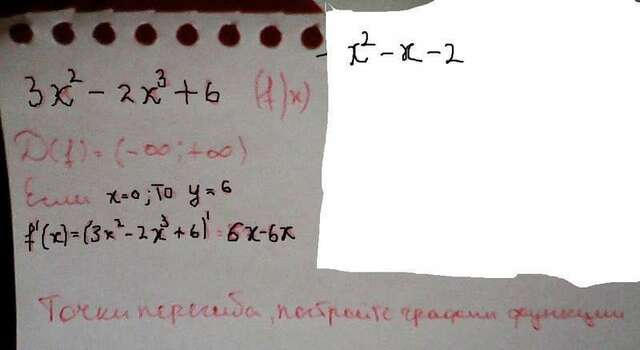 3x² - 2x³ + 6 (f)x)
D(f) = (-∞; +∞)
Если x=0; то y=6
f'(x)=(3x² - 2x³ + 6)' = 6x-6x
- x² - x - 2
Точки перегиба, постройте графики функции